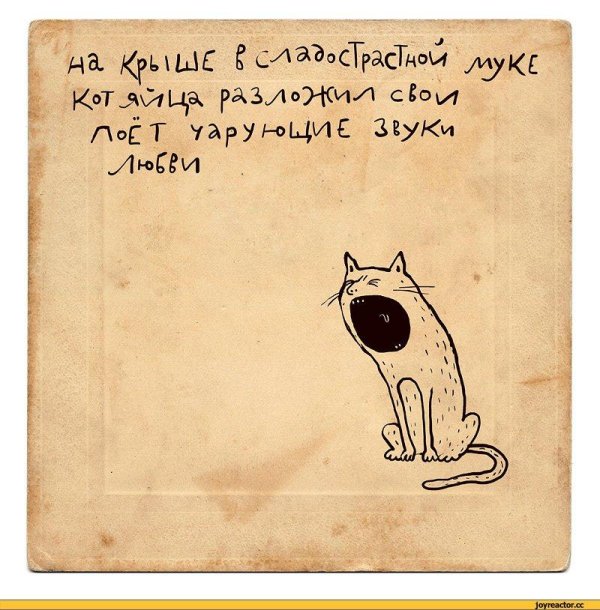 на крыше в сладострастной муке
кот яйца разложил свои
поёт чарующие звуки
любви
joyreactor.cc